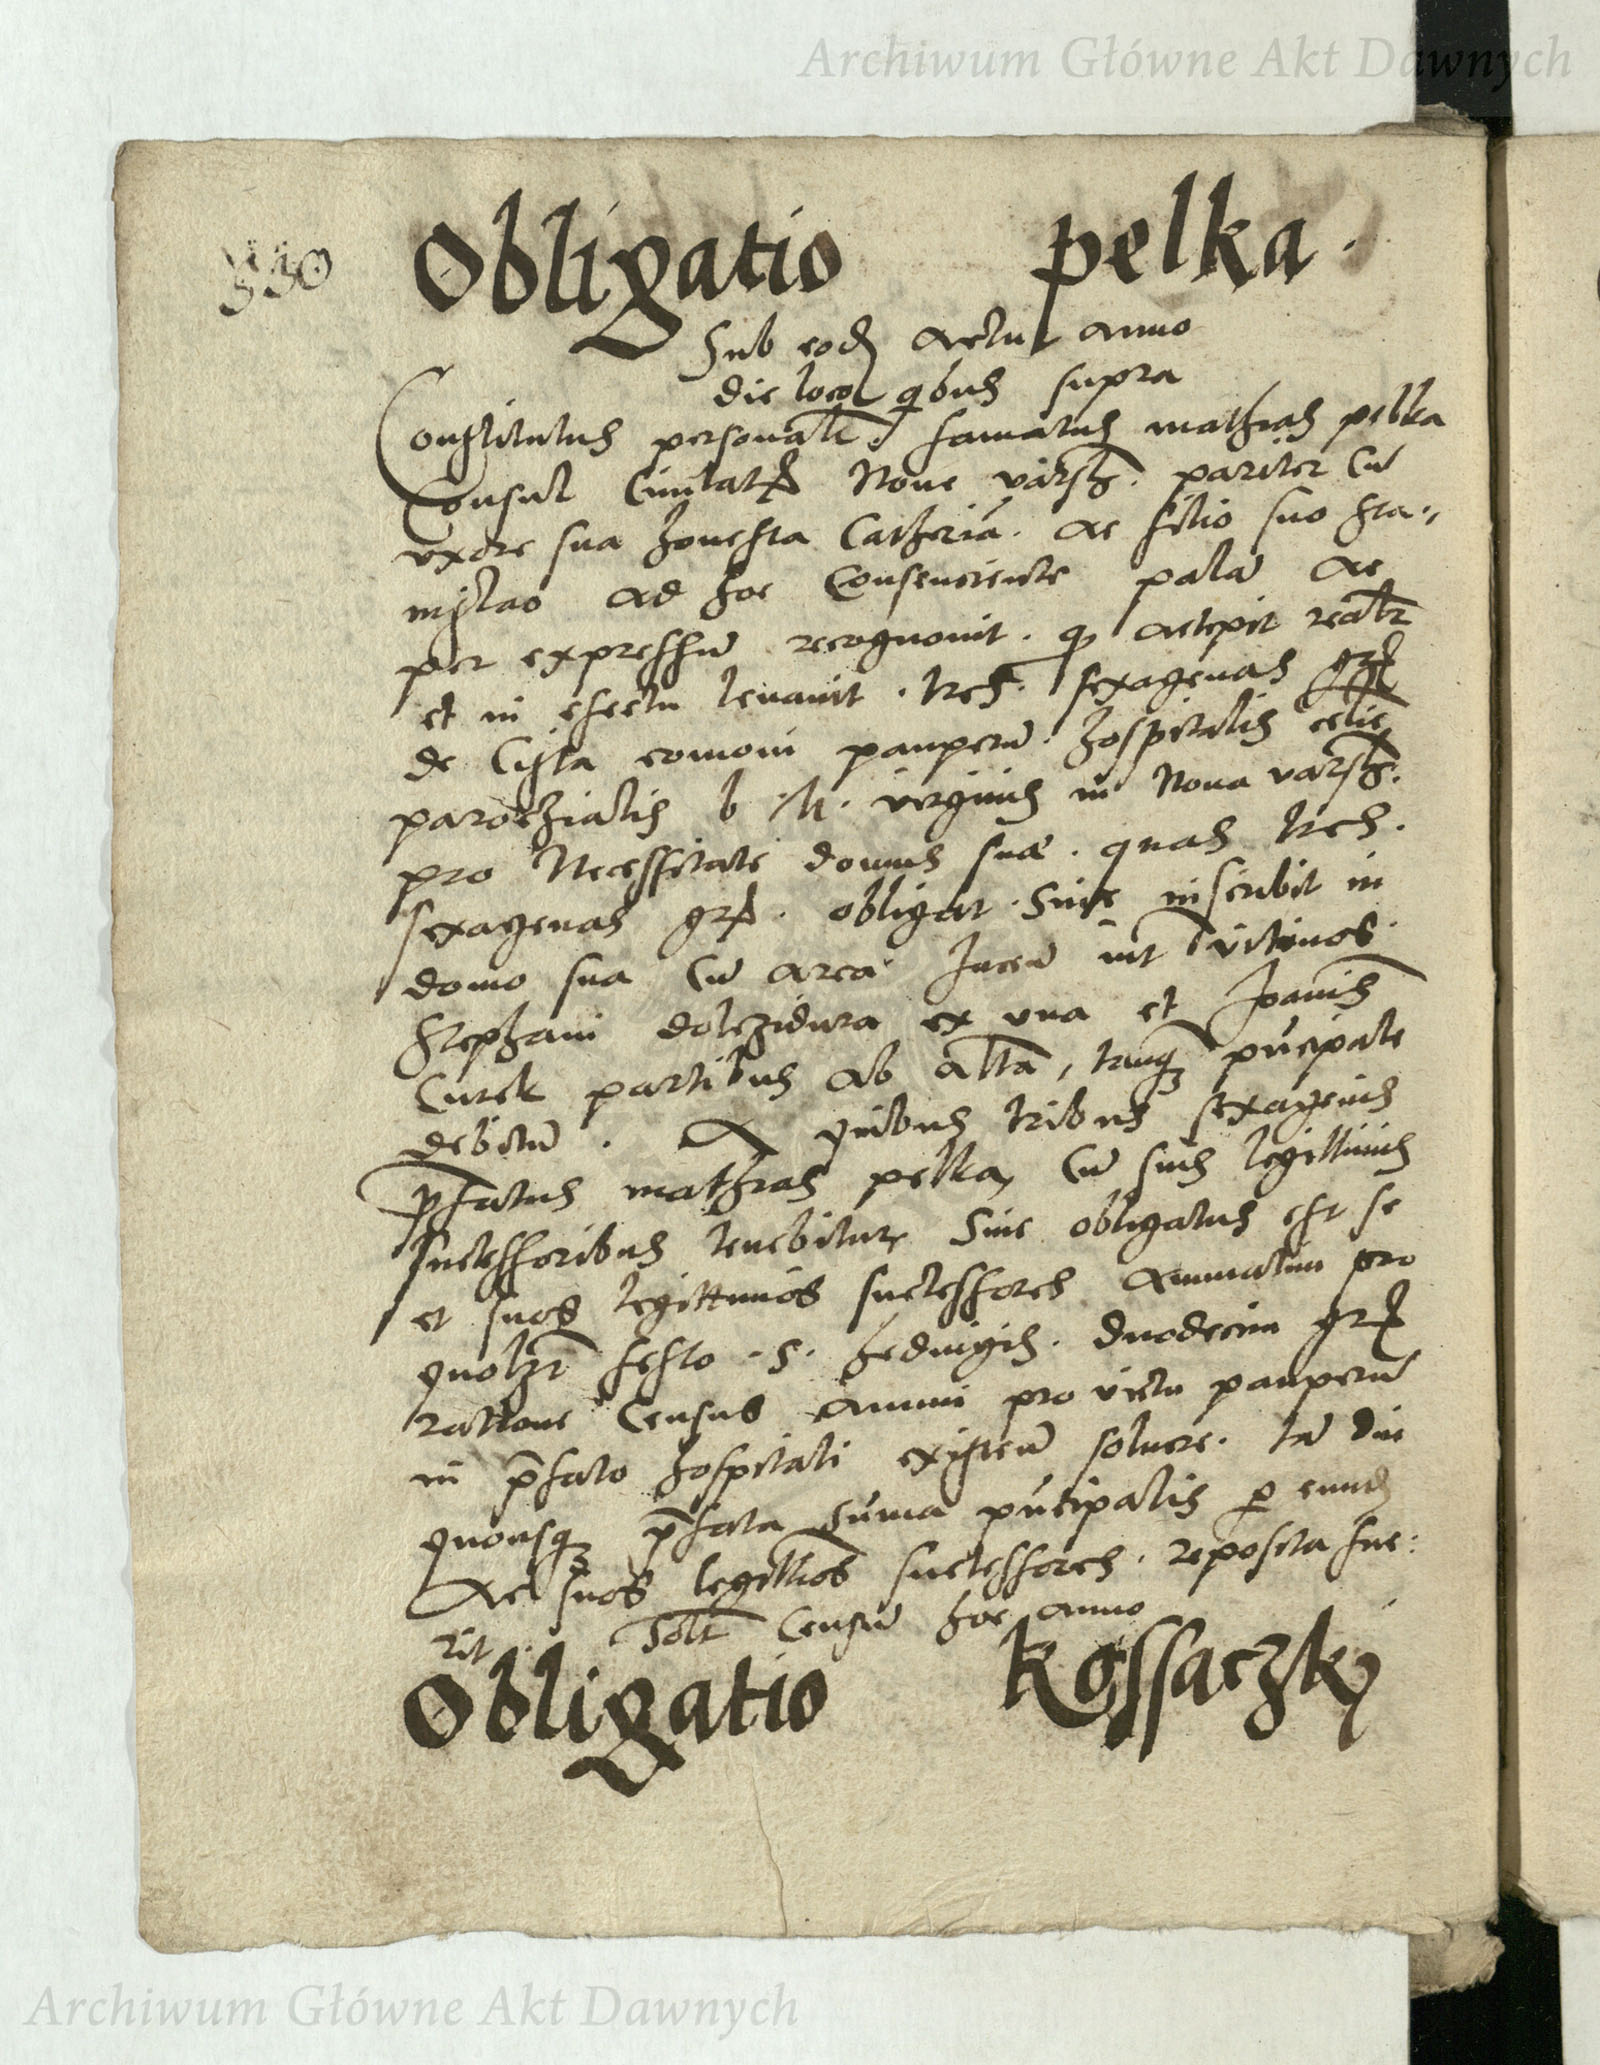 Archiwum Główne Akt Dawnych
Obligatio pelka.
Sub eod actu anno
die loco qbus supra
Constitutus personalr famatus mathias pelka
Consul Ciuitats Noue varsch. pariter Cu
uxore sua honesta Catheria. ac filio suo sta-
nyslao ad hoc Consenciente palā ac
per expressum recognouit. q accepit realr
et in efectu leuauit. tres. sexagenas grs
de Cista comoni pauperū hospitalis eclie
parochialis b. M. virginis in Noua varsch.
pro Necessitate domus suæ. quas tres.
sexagenas grs. obligat. Siue inscribit in
domo sua Cū area Iacen int vicinos.
Stephani dolezidura ex una et Joanis
Curek partibus ab altā, tanq prīcipale
debitum. A quibus tribus sexagenis
p̄fatus mathias pelka, Cū suis legittimis
successoribus tenebitur Siue obligatus est se
et suos legittimos successores annuatim pro
quolzt festo. S. hedwigis. duodecim grs
rattone Census annui pro victu pauperū
in p̄fato hospitali existen soluere. tā diu
quousq p̄fata suma prīcipalis p eund
Ac suos legittios successores. reposita fue:
rit. Solt Censū hoc anno
Obligatio Kossaczky
Archiwum Główne Akt Dawnych